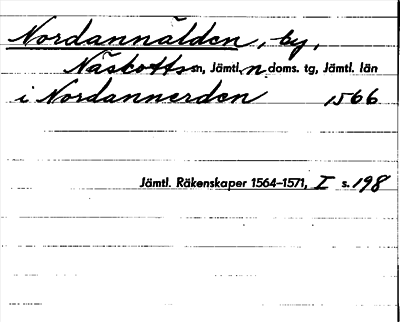 Nordannälden, by,
Näskotts sn, Jämtl. n. doms. tg, Jämtl. län
i Nordannerden 1566
Jämtl. Räkenskaper 1564–1571, I s. 198